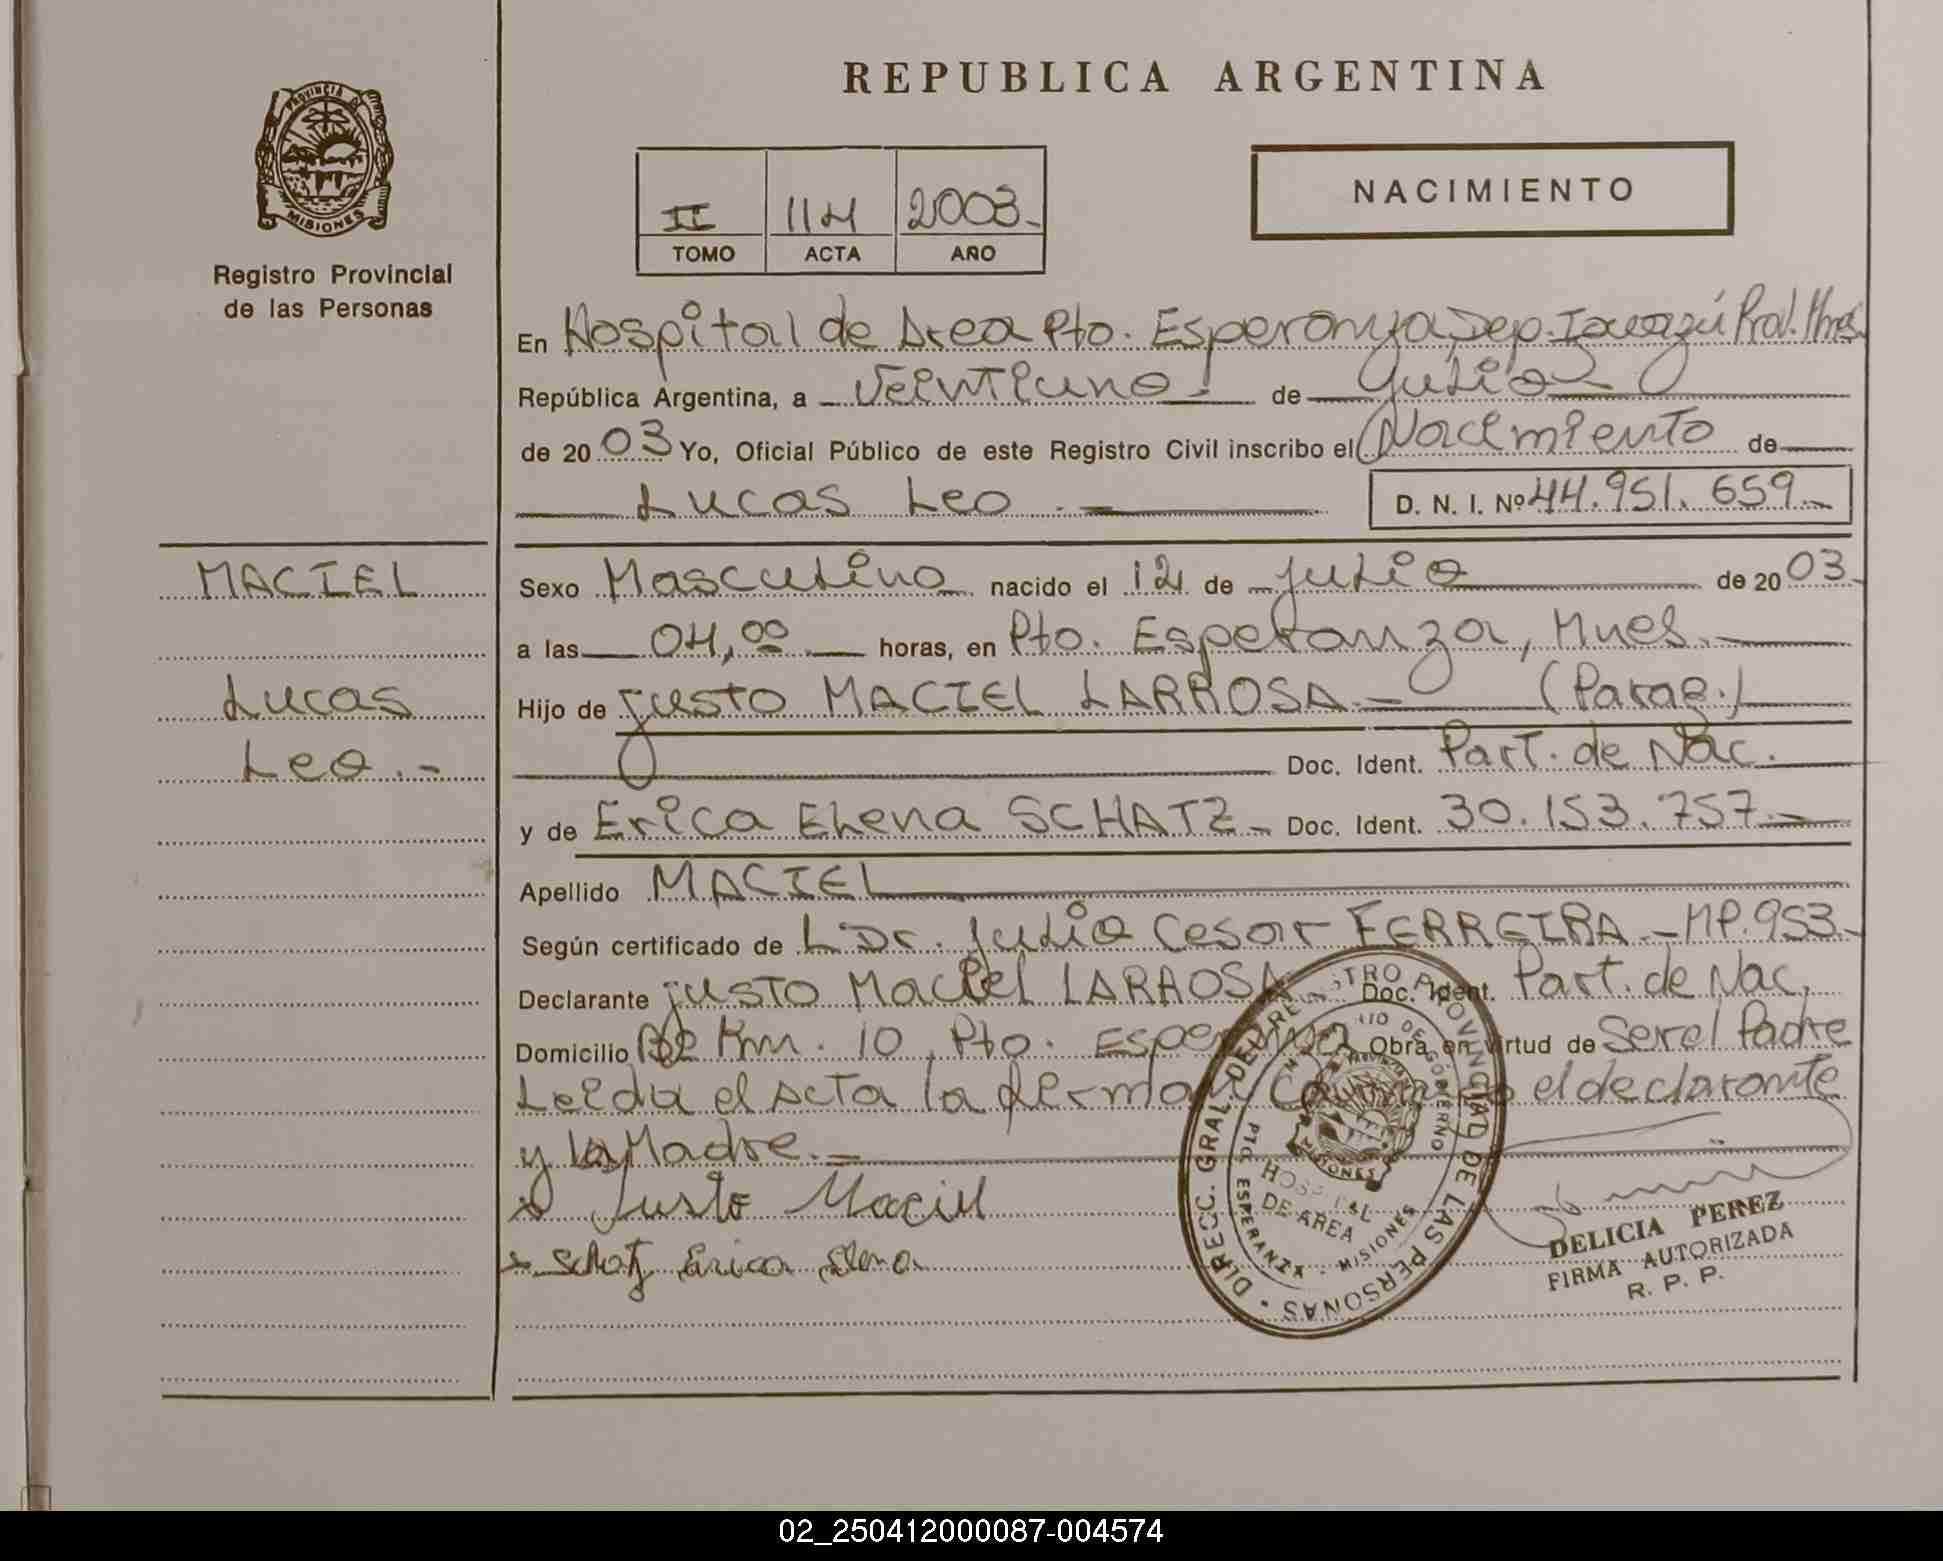 PROVINCIA DE
MISIONES
Registro Provincial
de las Personas
REPUBLICA ARGENTINA
II 114 2003.-
TOMO ACTA AÑO
NACIMIENTO
En Hospital de Area Pto. Esperanza, Dep. Iguazú
República Argentina, a Veintiuno.- de Julio
de 20 03 Yo, Oficial Público de este Registro Civil inscribo el Nacimiento de
Lucas Leo.-
D. N. I. Nº 44.951.659.-
MACIEL
Lucas
Leo.-
Sexo Masculino nacido el 12 de Julio de 20 03.-
a las 04,00.- horas, en Pto. Esperanza, Mnes.-
Hijo de Justo MACIEL LARROSA.- (Parag.)
Doc. Ident. Part. de Nac.
y de Erica Elena SCHATZ- Doc. Ident. 30.153.757.-
Apellido MACIEL
Según certificado de Dr. Julio Cesar FERREIRA.- MP.953.-
Declarante Justo Maciel LARROSA Doc. Ident. Part. de Nac.
Domicilio Km. 10, Pto. Esperanza Obra en virtud de Ser el Padre
Leida el Acta la firman el declarante
y la Madre.-
Justo Maciel
Schatz Erica Elena
DIRECC. GRAL. DEL REGISTRO PROVINCIAL DE LAS PERSONAS
MINISTERIO DE GOBIERNO
MISIONES
HOSPITAL
DE AREA
PTO. ESPERANZA - MISIONES
DELICIA PEREZ
FIRMA AUTORIZADA
R. P. P.
02_250412000087-004574